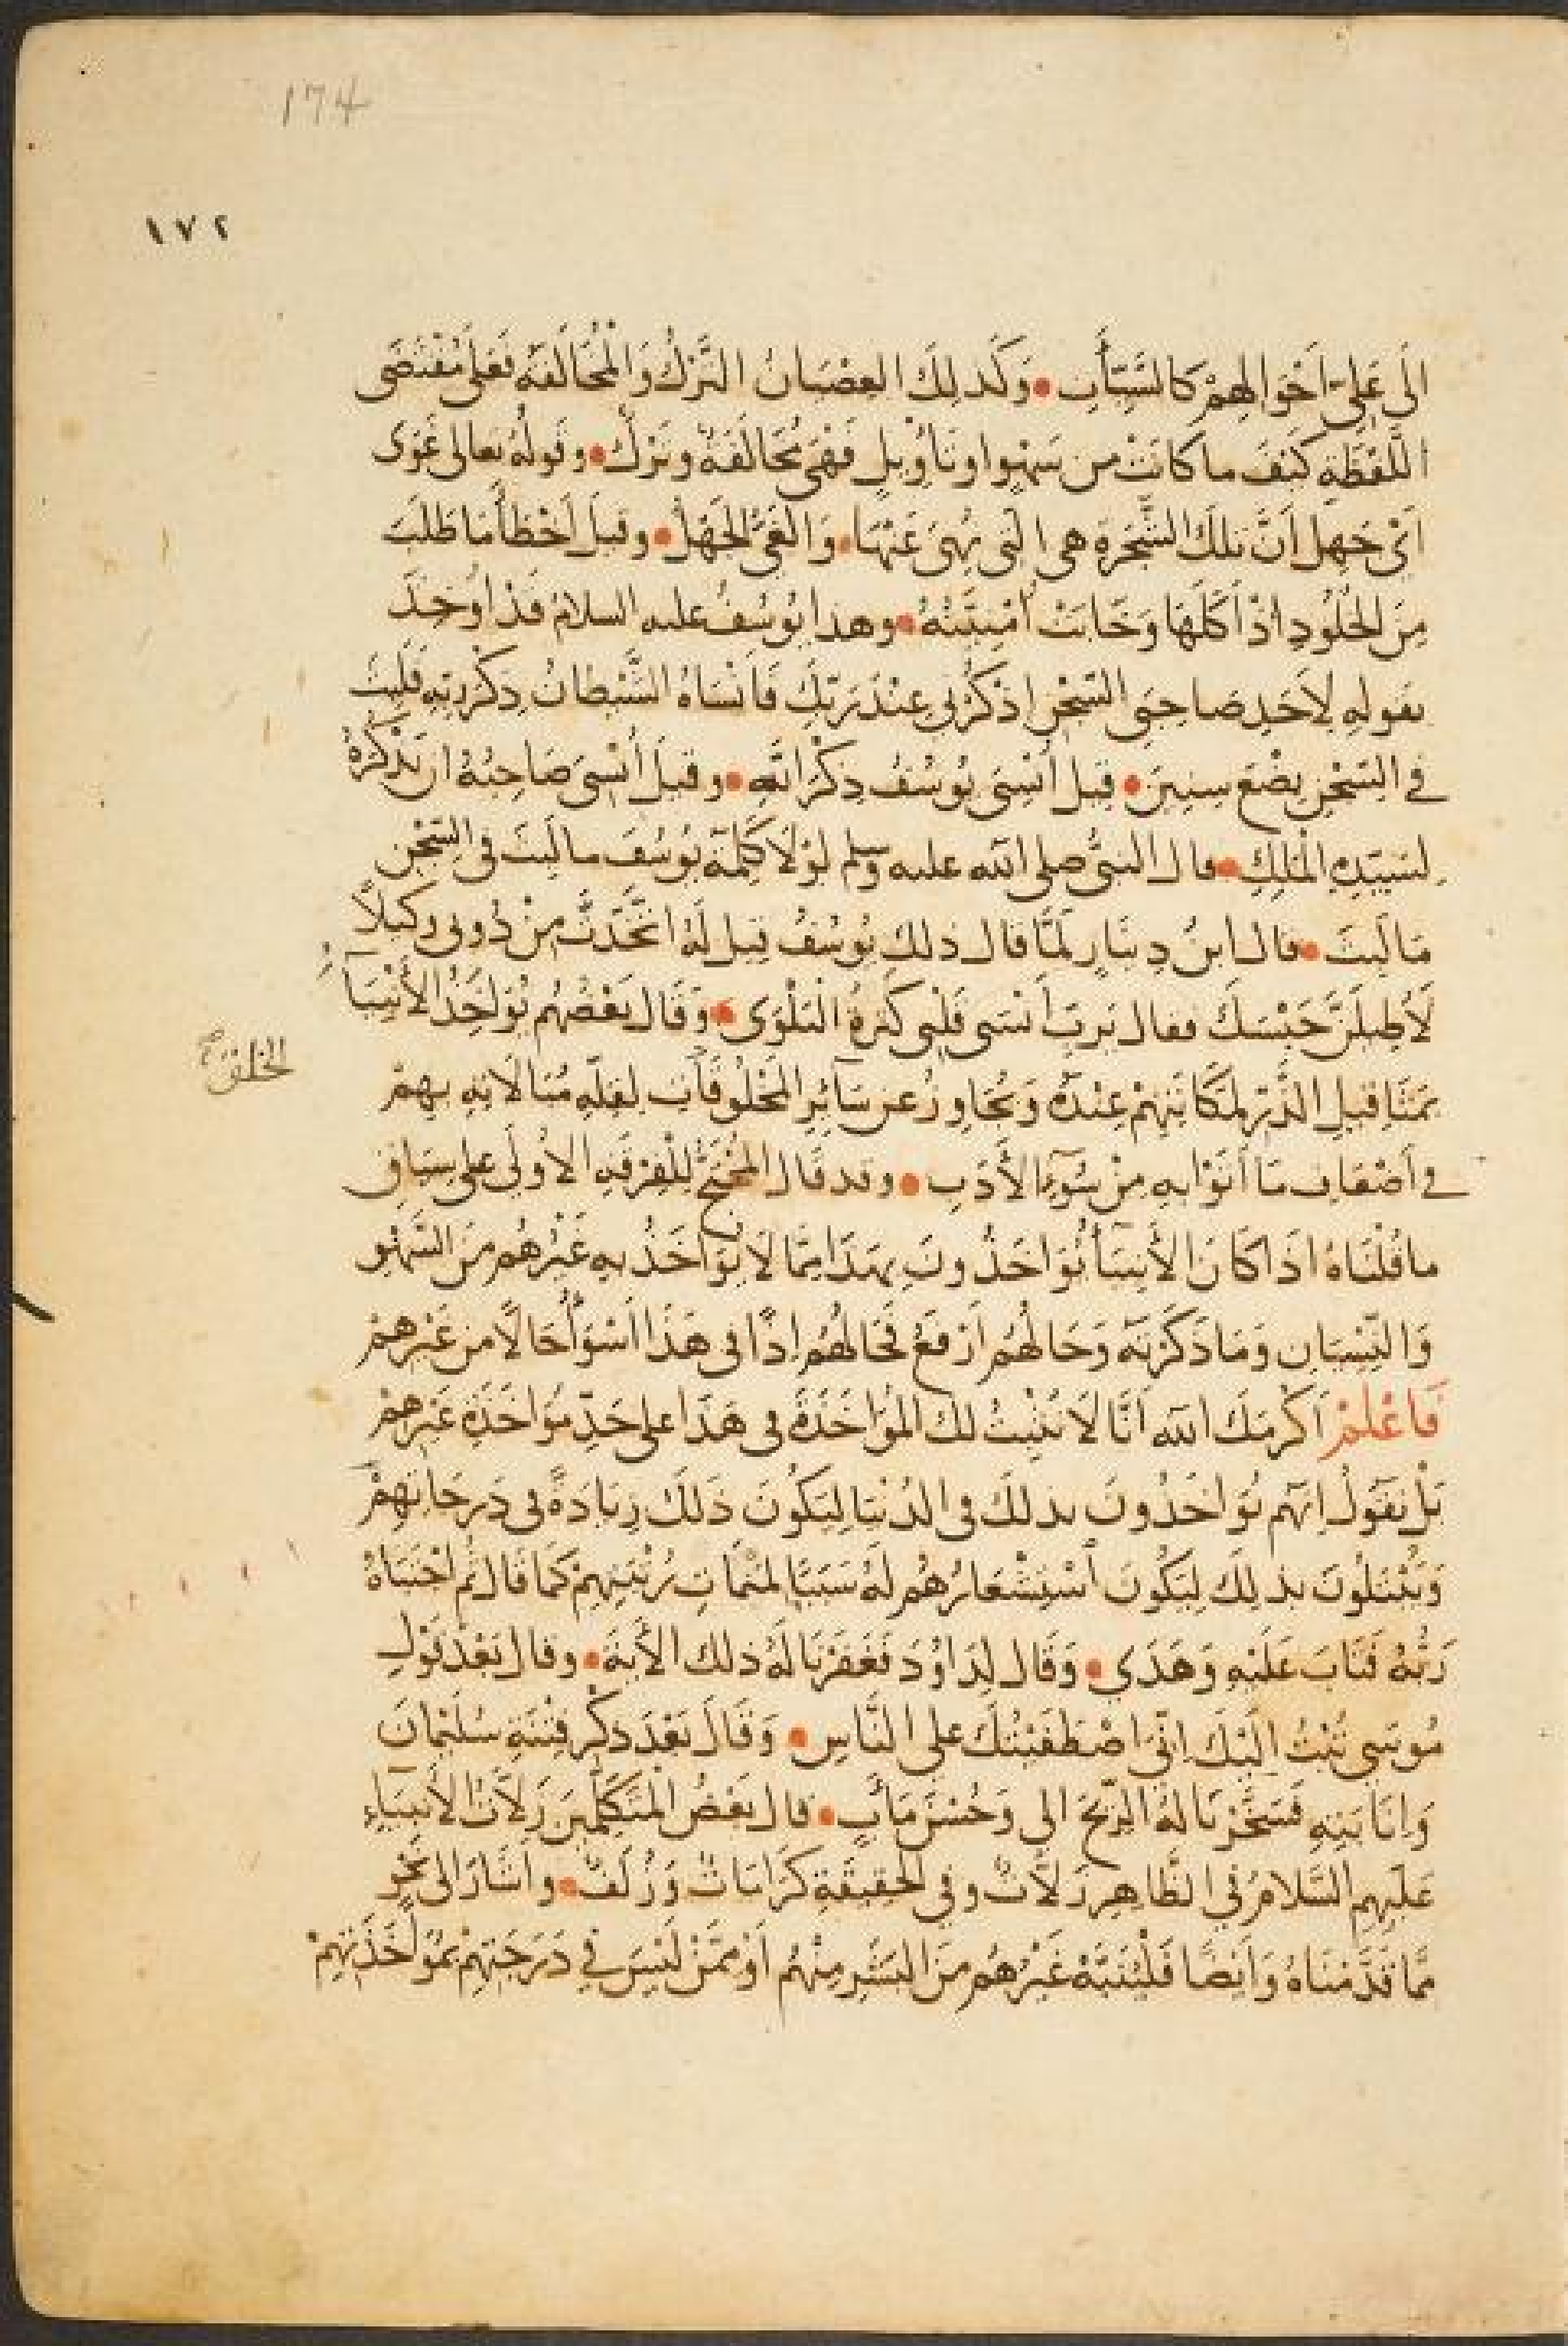 174
١٧٢
الَى عَلِىِّ اَحْوَالِهِمْ كَالسَّيِّئَاتِ • وَكَذلِكَ العِصْيَانُ التَّرْكُ وَالْمُخَالَفَةُ فَعَلَى مُقْتَضَى
اللَّفْظَةِ كَيْفَ ما كَانَتْ من سَهْوٍ او تَأْوِيْلٍ فَهْىَ مُخَالَفَةٌ وتَرْكٌ • وقولُهُ تعالى غَوَى
اَىْ جَهِلَ اَنَّ تلكَ الشَّجَرَةَ هى الَّتِى نُهِىَ عَنْهَا • وَالْغَىُّ الْجَهْلُ • وقيلَ اَخْطَأَ مَا طَلَبَ
مِنَ الْخُلُودِ اِذْ اَكَلَهَا وَخَابَتْ اُمْنِيَّتُهُ • وهذا يُوسُفُ عليه السلامُ قَدْ اُوْخِذَ
بقولِهِ لِاَحَدِ صَاحِبَىِ السِّجْنِ اذْكُرْنِى عِنْدَ رَبِّكَ فَاَنْسَاهُ الشَّيْطَانُ ذِكْرَ رَبِّهِ فَلَبِثَ
فى السِّجْنِ بِضْعَ سِنِينَ • قيل اُنْسِىَ يُوسُفُ ذِكْرَ اللهِ • وقيلَ اُنْسِىَ صَاحِبُهُ ان يَذْكُرَهُ
لسَيِّدِهِ الْمَلِكِ • قال النبىُّ صلى الله عليه وسلم لَوْلَا كَلِمَةُ يُوسُفَ ما لَبِثَ فى السِّجْنِ
مَا لَبِثَ • قال ابنُ دِينَارٍ لَمَّا قال ذلك يُوسُفُ قِيل لَهُ اتَّخَذْتَ مِنْ دُونى وَكِيلًا
لَاُطِيلَنَّ حَبْسَكَ فقال يَرَبِّ اَنْسَى قَلْبِى كَثْرَةُ الْبَلْوَى • وَقَال بَعْضُهُم يُوَاخَذُ الاَنْبِيَآءُ
بمَثَاقِيلِ الذَّرِّ لِمَكَانَتِهِمْ عِنْدَهُ وَيُجَاوِزُ عن سَآئِرِ الْمَخْلُوقَاتِ لِقِلَّةِ مُبَالَاتِهِ بِهِمْ
الخلق صح
فى اَضْعَافِ مَا اَتَوْا بِهِ مِنْ سُوۤءِ الأَدَبِ • وقد قَال الْمُحْتَجُّ لِلْفِرْقَةِ الاُولَى على سِيَاقِ
ما قُلْنَاهُ اذَا كَانَ الأَنبِيَآءُ يُوَاخَذُونَ بِهَذَا مِمَّا لَا يُوَاخَذُ بِهِ غَيْرُهُم مِنَ السَّهْوِ
وَالنِّسْيَانِ وَمَا ذَكَرْتَهُ وَحَالُهُمْ اَرْفَعُ فَحَالُهُم اِذًا فى هَذَا اَسْوَأُ حَالًا من غَيْرِهِمْ
فَاعْلَمْ اَكْرَمَكَ الله اَنَّا لَا نُثْبِتُ لك الْمُؤَاخَذَةَ فى هَذَا على حَدِّ مُؤَاخَذَةِ غَيْرِهِمْ
بَلْ نَقُولُ اِنَّهُم يُوَاخَذُونَ بذلكَ فى الدُّنْيَا لِيَكُونَ ذَلكَ زِيَادَةً فى دَرَجَاتِهِمْ
وَيُبْتَلَوْنَ بذلِكَ لِيَكُونَ اسْتِشْعَارُهُم لَهُ سَبَبًا لِمَنْمَاتِ رُتْبَتِهِمْ كَمَا قَال ثُمَّ اجْتَبَاهُ
رَبُّهُ فَتَابَ عَلَيْهِ وَهَدَى • وَقَال لِدَاوُدَ فَغَفَرْنَا لَهُ ذلك الأَيَةَ • وقال بَعْدَ قَوْلِ
مُوسَى تُبْتُ اِلَيْكَ اِنِّى اصْطَفَيْتُكَ على النَّاسِ • وَقَالَ بَعْدَ ذكْرِ فِتْنَةِ سُلَيْمَانَ
وَاِنَابَتِهِ فَسَخَّرْنَا لَهُ الرِّيحَ الى وَحُسْنَ مَأَبٍ • قال بَعْضُ الْمُتَكَلِّمِينَ زَلَّاتُ الأَنْبِيَاءِ
عَلَيْهِم السَّلَامُ فى الظَّاهِرِ زَلَّاتٌ وفى الْحَقِيقَةِ كَرَامَاتٌ وَزُلَفٌ • واَشَارَ الى نَحْوٍ
مِمَّا قَدَّمْنَاهُ وَاَيْضًا فَلْيُنَبَّهْ غَيْرُهُم مِنَ الْبَشَرِ مِنْهُم اَوْ مِمَّنْ لَيْسَ فى دَرَجَتِهِمْ بمُوَاخَذَتِهِمْ